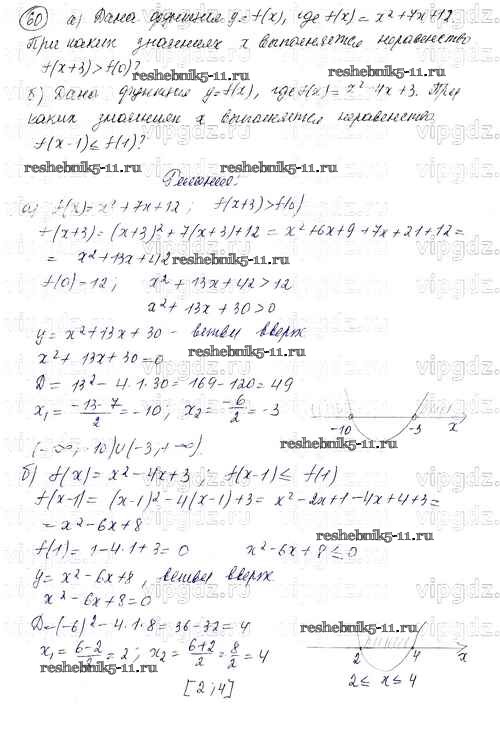 60 а) Дана функция y = f(x), где f(x) = x² + 7x + 12.
При каких значениях x выполняется неравенство
f(x+3) > f(0)?
reshebnik5-11.ru
б) Дана функция y = f(x), где f(x) = x² - 4x + 3. При
каких значениях x выполняется неравенство
f(x-1) ≤ f(1)?
reshebnik5-11.ru
reshebnik5-11.ru
Решение:
а) f(x) = x² + 7x + 12; f(x+3) > f(0)
f(x+3) = (x+3)² + 7(x+3) + 12 = x² + 6x + 9 + 7x + 21 + 12 =
= x² + 13x + 42
reshebnik5-11.ru
f(0) = 12; x² + 13x + 42 > 12
x² + 13x + 30 > 0
y = x² + 13x + 30 - ветви вверх
x² + 13x + 30 = 0
reshebnik5-11.ru
D = 13² - 4·1·30 = 169 - 120 = 49
x₁ = (-13-7)/2 = -10; x₂ = -6/2 = -3
-10 -3 x
reshebnik5-11.ru
(-∞; -10)∪(-3; +∞).
б) f(x) = x² - 4x + 3; f(x-1) ≤ f(1)
f(x-1) = (x-1)² - 4(x-1) + 3 = x² - 2x + 1 - 4x + 4 + 3 =
= x² - 6x + 8
reshebnik5-11.ru
f(1) = 1 - 4·1 + 3 = 0 x² - 6x + 8 ≤ 0
y = x² - 6x + 8, ветви вверх
reshebnik5-11.ru
x² - 6x + 8 = 0
D = (-6)² - 4·1·8 = 36 - 32 = 4
reshebnik5-11.ru
x₁ = (6-2)/2 = 2; x₂ = (6+2)/2 = 8/2 = 4
reshebnik5-11.ru
2 4 x
[2; 4]
2 ≤ x ≤ 4
vipgdz.ru